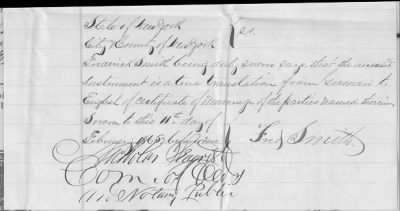 State of New York
City & County of New York } ss.
Frederick Smith being duly sworn says that the annexed
instrument is a true translation from German to
English of certificate of marriage of the parties named therein.
Sworn to this 11th day of
February 1865 before me } Fred Smith.
Nicholas
Com. of Deeds
and Notary Public